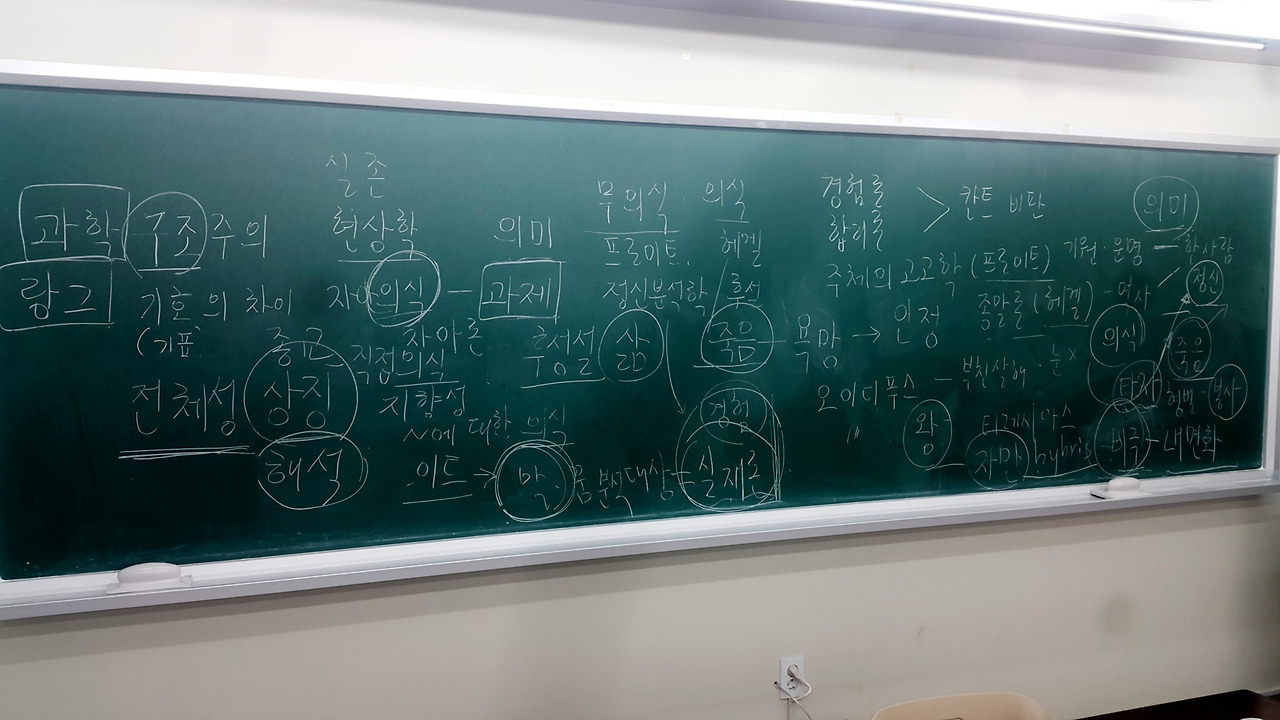 실존
과학 구조주의 현상학 의미
랑그 기호의 차이 자아의식 - 과제
(기표 중근 자아론
전체성 상징 직접의식
지향성
~에 대한 의식
해석 이드 → 막 꿈 분석대상 - 실재론
무의식 · 의식
프로이트 헤겔
정신분석학 후설
추상설 삶 죽음 - 욕망 → 인정
경험
경험론
합리론 > 칸트 비판 의미
주체의 고고학 (프로이트) 기원 · 운명 - 한사람
종말론 (헤겔) - 역사 정신
의식 죽음
오이디푸스 - 부친살해 · 눈 x
타자 형벌 - 봉사
〃 왕 티레시아스
자만 hybris - 비극 - 내면화